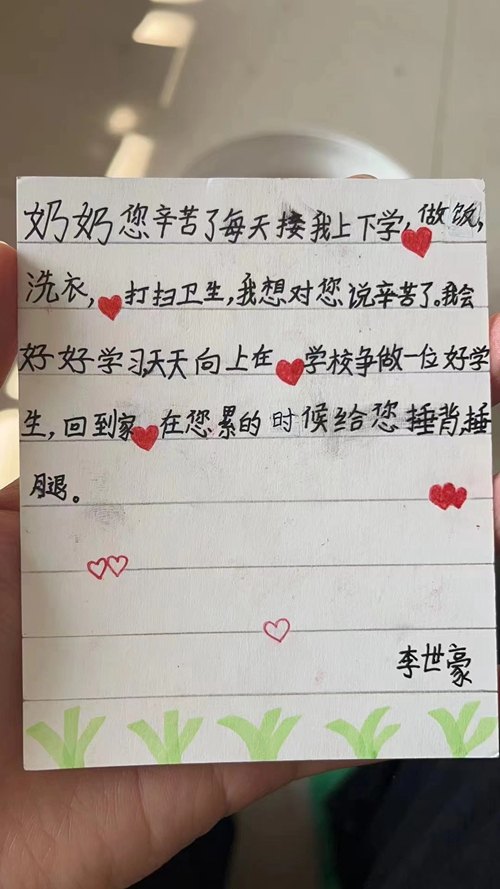 奶奶您辛苦了每天接我上下学,做饭,
洗衣,打扫卫生,我想对您说辛苦了。我会
好好学习,天天向上在学校争做一位好学
生,回到家在您累的时候给您捶背,捶
腿。
李世豪